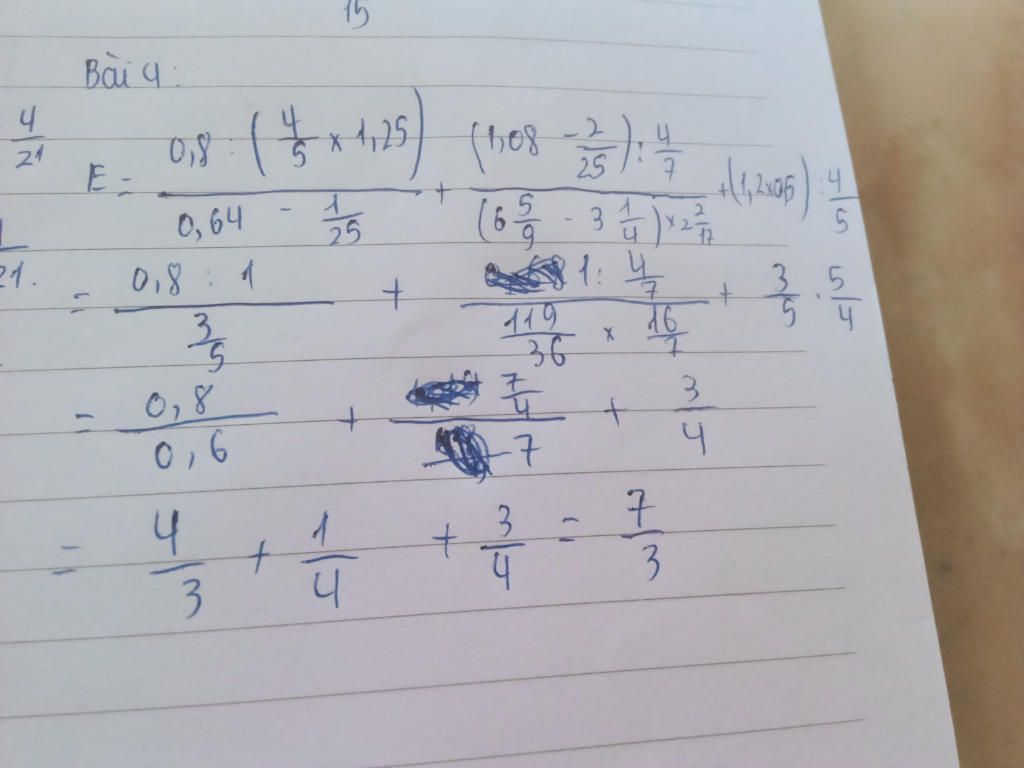 15
Bài 4:
4/21
E = (0,8 : (4/5 × 1,25))/(0,64 - 1/25) + ((1,08 - 2/25) : 4/7)/((6 5/9 - 3 1/4) × 2 2/17) + (1,2 × 0,5) : 4/5
21.
= (0,8 : 1)/(3/5) + (1 : 4/7)/(119/36 × 16/7) + 3/5 . 5/4
= 0,8/0,6 + (7/4)/7 + 3/4
= 4/3 + 1/4 + 3/4 = 7/3